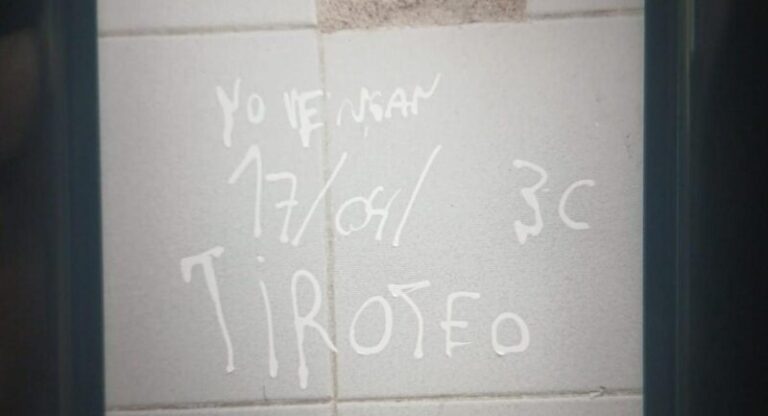 YO VENGAN
17/04/ 3C
TIROTEO